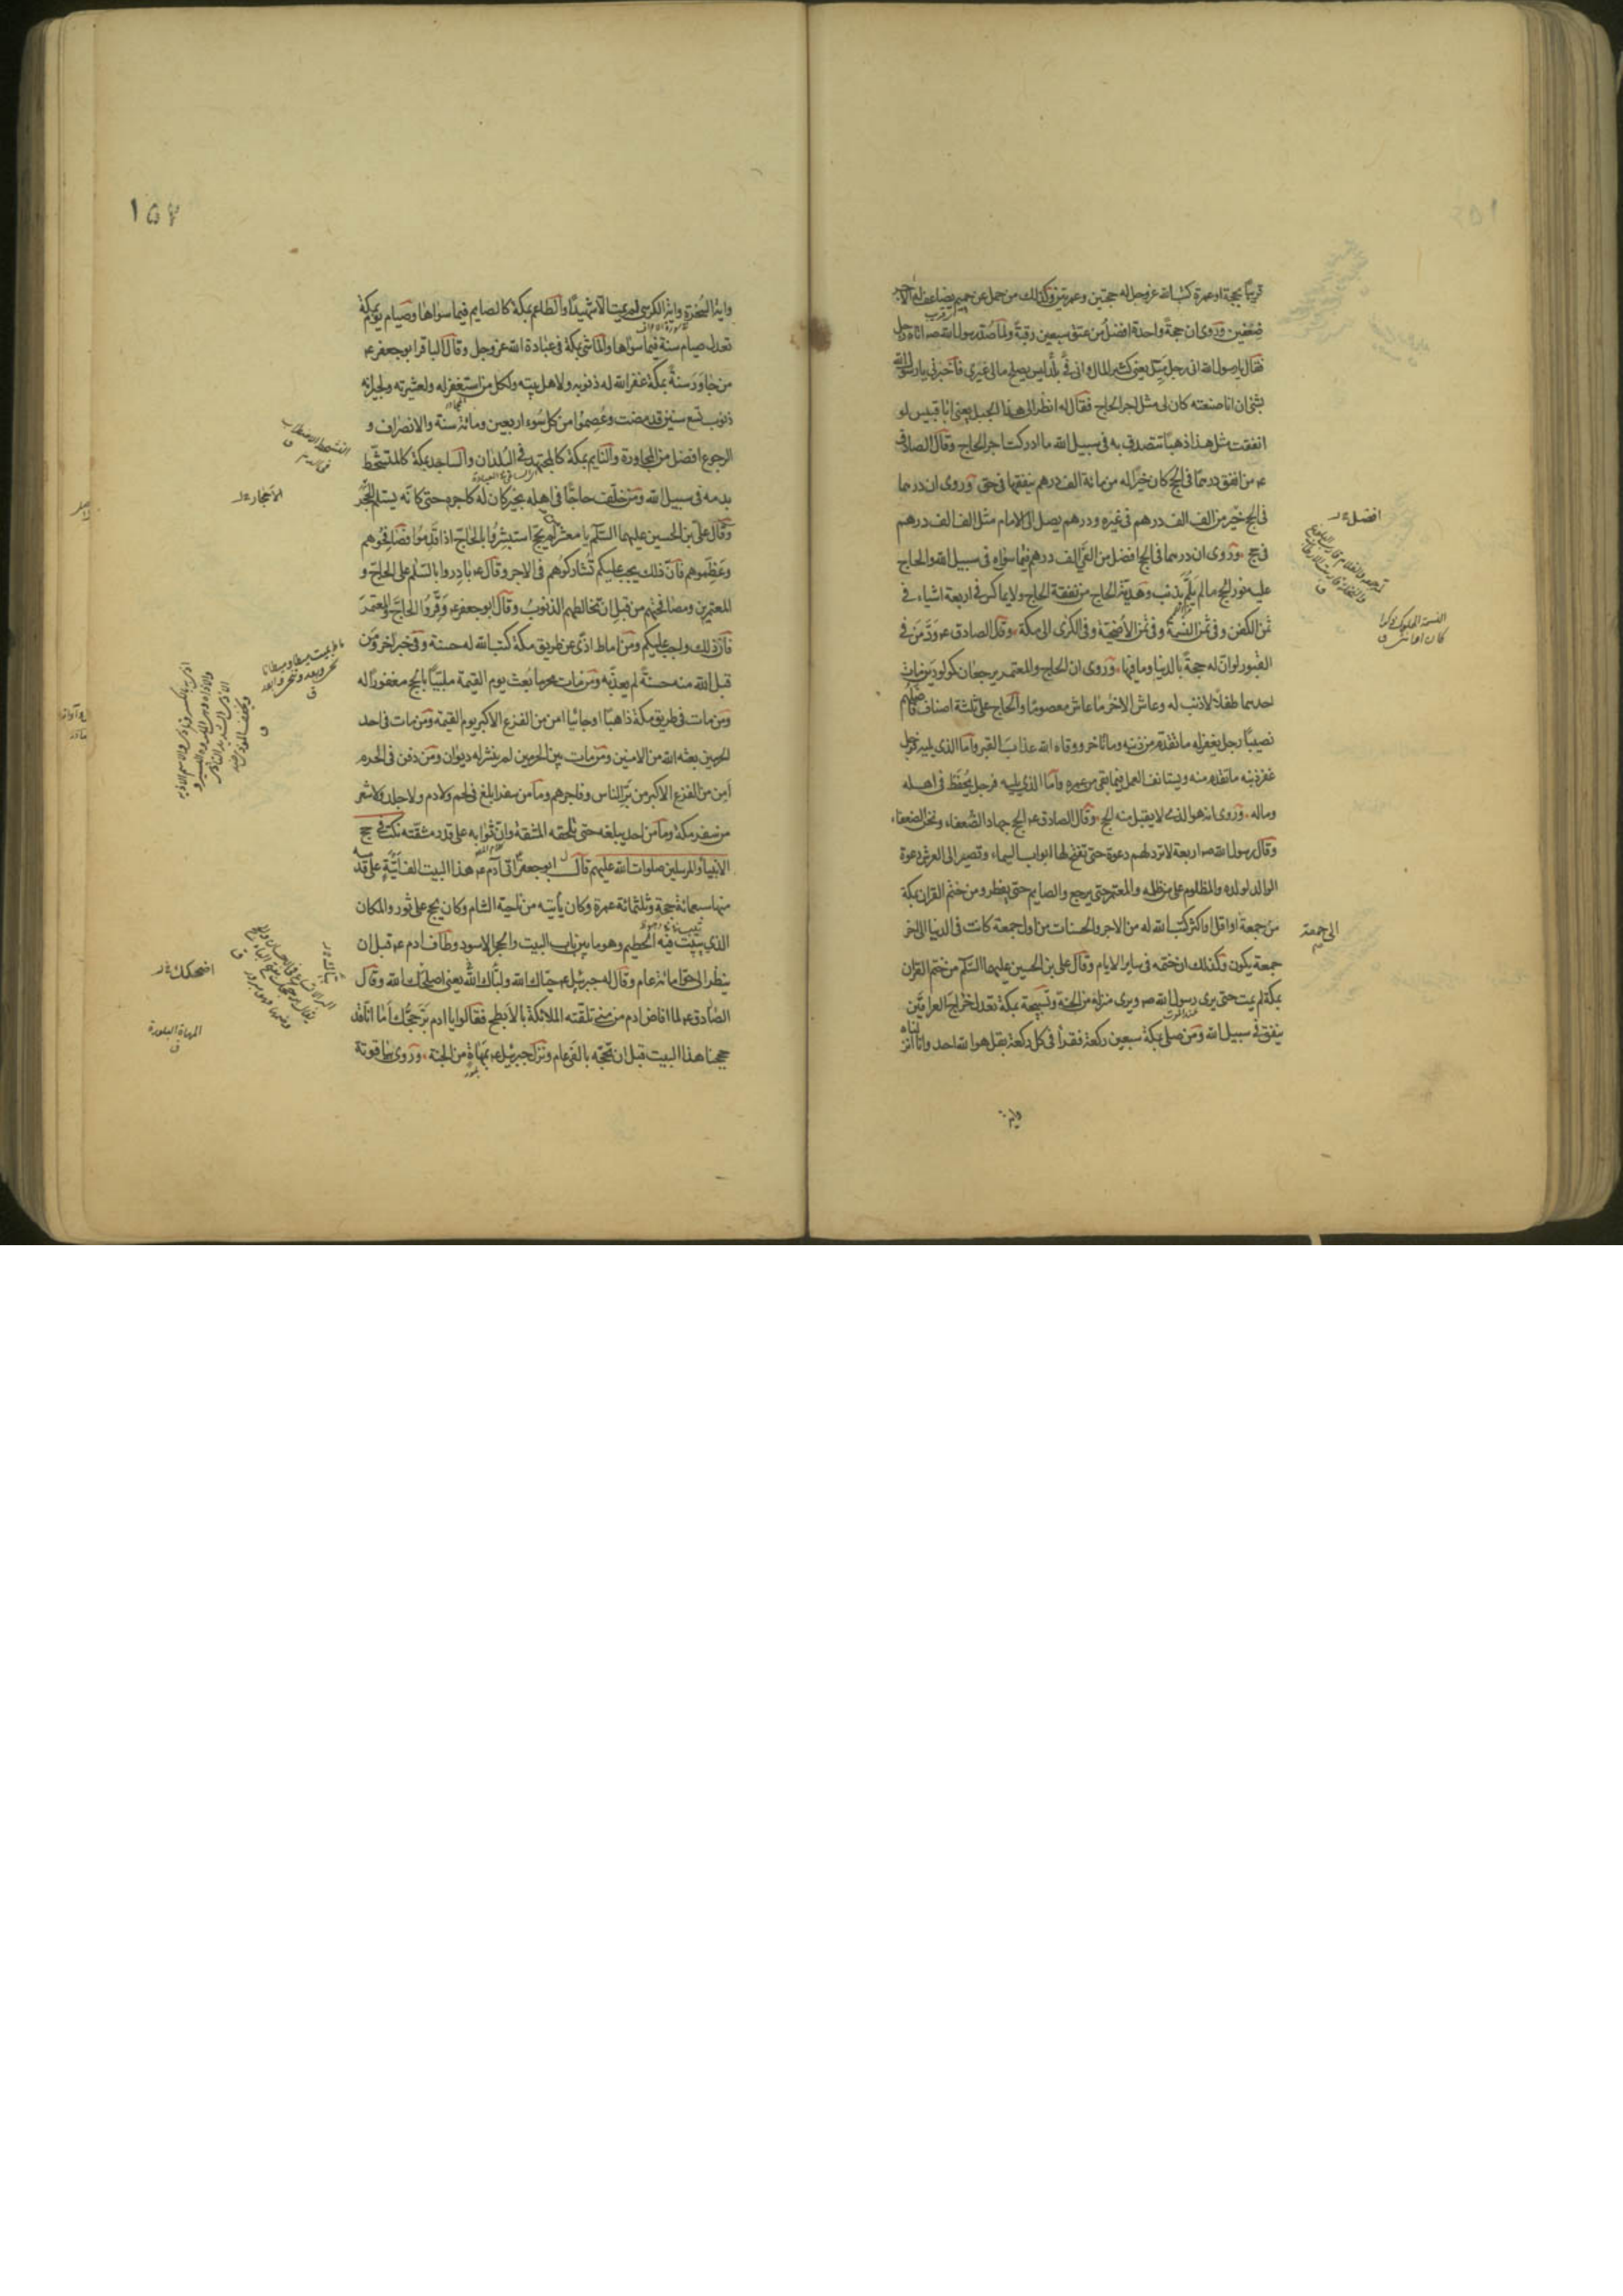 قريبًا بحجة او عمرة كتب الله عز وجل له حجتين وعمرتين وكذلك من حمل عن حميم يضاعف له الاجر
ضعفين وروى ان حجة واحدة افضل من عتق سبعين رقبة ولما صد رسول الله صه اتاه رجل
فقال يا رسول الله انى رجل ميل يعنى كثير المال وانى فى بلد ليس يصلح مالى غيرى فاخبرنى يا رسول الله
بشئ ان انا صنعته كان لى مثل اجر الحاج فقال له انظر الى هذا الجبل يعنى ابا قبيس لو
انفقت مثل هذا ذهبًا تتصدق به فى سبيل الله ما ادركت اجر الحاج وقال الصادق
عه من انفق درهمًا فى الحج كان خيرًا له من مائة الف درهم ينفقها فى حق وروى ان درهما
فى الحج خير من الف الف درهم فى غيره ودرهم يصل الى الامام مثل الف الف درهم
فى حج وروى ان درهما فى الحج افضل من الفى الف درهم فيما سواه فى سبيل الله والحاج
عليه نور الحج ما لم يلم بذنب وهدية الحاج من نفقة الحاج ولا يماكس فى اربعة اشياء فى
ثمن الكفن وفى ثمن النسمة وفى ثمن الاضحية وفى الكرى الى مكة وقال الصادق عه ود من فى
القبور لو ان له حجة بالدنيا وما فيها وروى ان الحاج والمعتمر يرجعان كمولودين مات
احدهما طفلا لا ذنب له وعاش الاخر ما عاش معصومًا والحاج على ثلثة اصناف فافضلهم
نصيبًا رجل يغفر له ما تقدم من ذنبه وما تاخر ووقاه الله عذاب القبر واما الذى يليه فرجل
غفر ذنبه ما تقدم منه ويستانف العمل فيما بقى من عمره واما الذى يليه فرجل يحفظ فى اهله
وماله وروى انه هو الذى لا يقبل منه الحج وقال الصادق عه الحج جهاد الضعفاء ونحن الضعفاء
وقال رسول الله صه اربعة لا ترد لهم دعوة حتى تفتح لها ابواب السماء وتصير الى العرش دعوة
الوالد لولده والمظلوم على من ظلمه والمعتمر حتى يرجع والصايم حتى يفطر ومن ختم القران بمكة
من جمعة او اقل او اكثر كتب الله له من الاجر والحسنات من اول جمعة كانت فى الدنيا الى اخر
جمعة يكون وكذلك ان ختمه فى ساير الايام وقال على بن الحسين عليهما السلم من ختم القران
بمكة لم يمت حتى يرى رسول الله صه ويرى منزله من الجنة وتسبيحة بمكة تعدل خراج العراقين
ينفق فى سبيل الله ومن صلى بمكة سبعين ركعة فقرأ فى كل ركعة بقل هو الله احد وانا انزلناه
واية
افضل
النسمة المملوك ذكرا
كان او انثى ق
الى جمعة
١٥٧
واية السخرة واية الكرسى لم يمت الا شهيدًا والطاعم بمكة كالصايم فيما سواها وصيام يوم بمكة
تعدل صيام سنة فيما سواها والماشى بمكة فى عبادة الله عز وجل وقال الباقر ابو جعفر عه
من جاور سنة بمكة غفر الله له ذنوبه ولاهل بيته ولكل من استغفر له ولعشيرته ولجيرانه
ذنوب تسع سنين قد مضت وعصموا من كل سوء اربعين ومائة سنة والانصراف و
الرجوع افضل من المجاورة والنايم بمكة كالمجتهد فى البلدان والساجد بمكة كالمتشحط
بدمه فى سبيل الله ومن خلف حاجًا فى اهله بخير كان له كاجره حتى كانه يستلم الحجر
وقال على بن الحسين عليهما السلم يا معشر من لم يحج استبشروا بالحاج اذا قدموا فصافحوهم
وعظموهم فان ذلك يجب عليكم تشاركوهم فى الاجر وقال عه بادروا بالسلم على الحاج و
المعتمرين ومصافحتهم من قبل ان تخالطهم الذنوب وقال ابو جعفر عه وقروا الحاج والمعتمر
فان ذلك واجب عليكم ومن اماط اذى عن طريق مكة كتب الله له حسنة وفى خبر اخر ومن
قبل الله منه حسنة لم يعذبه ومن مات محرما بعث يوم القيمة ملبيًا بالحج مغفورًا له
ومن مات فى طريق مكة ذاهبًا او جائيا امن من الفزع الاكبر يوم القيمة ومن مات فى احد
الحرمين بعثه الله من الامنين ومن مات بين الحرمين لم ينشر له ديوان ومن دفن فى الحرم
امن من الفزع الاكبر من بر الناس وفاجرهم وما من سفر ابلغ فى لحم ولا دم ولا جلد ولا شعر
من سفر مكة وما من احد يبلغه حتى تلحقه المشقة وان ثوابه على قدر مشقته نكت فى حج
الانبياء والمرسلين صلوات الله عليهم قال ابو جعفر عه اتى آدم عه هذا البيت الف اتية على قدميه
منها سبعمائة حجة وثلثمائة عمرة وكان يأتيه من ناحية الشام وكان يحج على ثور والمكان
الذى يبيت فيه الحطيم وهو ما بين باب البيت والحجر الاسود وطاف ادم عه قبل ان
ينظر الى حوا مائة عام وقال له جبرئيل عه حياك الله ولباك الله يعنى اصلحك الله وقال
الصادق عه لما افاض ادم من منى تلقته الملائكة بالابطح فقالوا يا ادم بر حجك اما انا قد
حججنا هذا البيت قبل ان تحجه بالفى عام ونزل جبرئيل عه بمهاة من الجنة وروى بياقوتة
التشحط الاضطراب
فى الدم ق
الاحجار
اضحكك
المهاة البلورة
ق